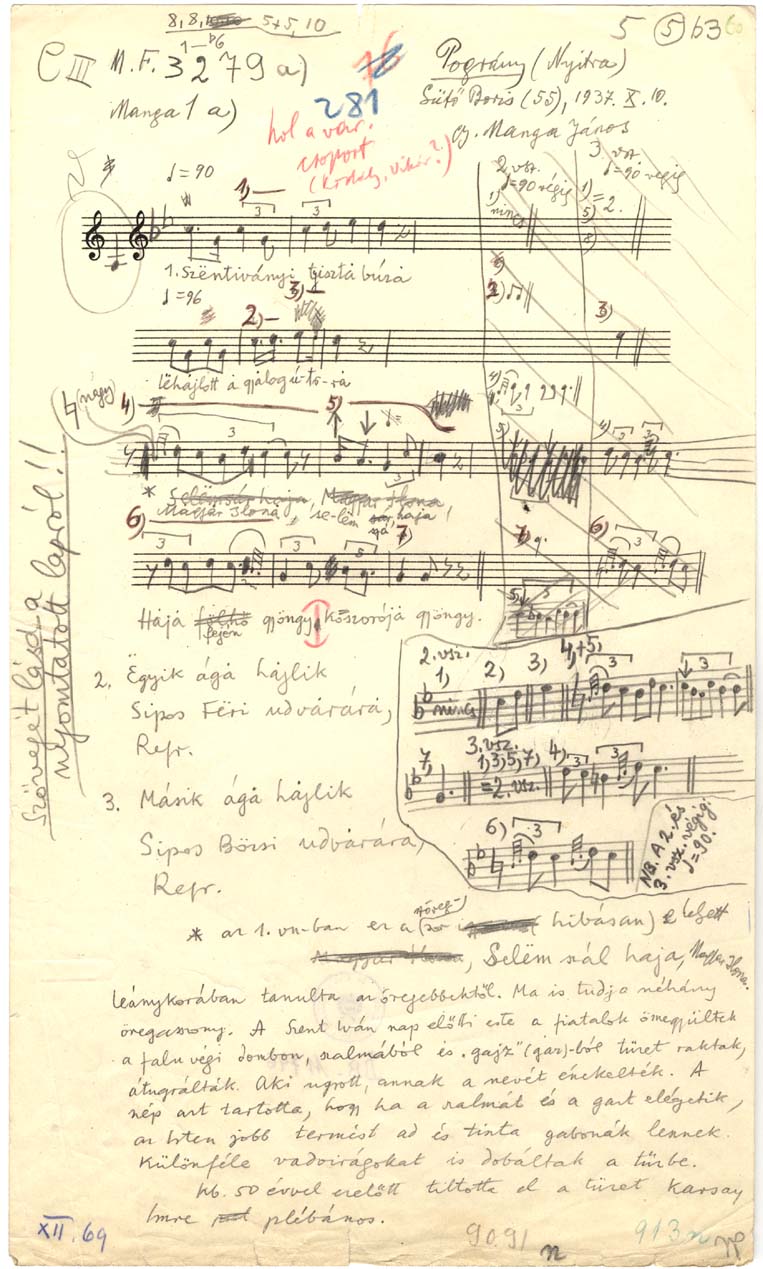 8, 8, 5+5, 10
5 (5) 63
C III M. F. 3279 a)
1–
76
281
Pográny (Nyitra)
Manga 1 a)
Sütő Boris (55), 1937. X. 10.
gy. Manga János
hol a vár.
csoport
(Kodály, Vikár?)
♩=90
2. vsz.
♩=90 végig
3. vsz.
♩=90 végig
1)
3
3
1)
nincs
1)
5)
=2.
1. Szëntiványi tiszta búza
♩=96
2)
3)
3)
lehajlott a gyalogútora
(nagy)
4)
5)
3
3
4)
5)
4)
3
* Selëmsár haja, Magyar Ilona
Magyar Ilona, se-lëm haja,
6)
7)
3
3
5
7)
6)
3
3
5
Haja fölső gyöngy, koszorója gyöngy.
fejem
Szövegét lásd a
nyomtatott lapról!!
2. Ëgyik ága hajlik
Sipos Fëri udvarára,
Refr.
3. Másik ága hajlik
Sipos Börzsi udvarára,
Refr.
2. vsz.
1)
2)
3)
4)+5)
3
3
nincs
7)
3. vsz.
1), 3), 5), 7)
=2. vsz.
4)
3
6)
3
NB. A 2. és
3. vsz. végig:
♩=90.
* az 1. vsz-ban ez a hibásan) lehett
Magyar Ilona, Selëm szál haja, Magyar Ilona.
leánykorában tanulta az öregebbektől. Ma is tudja néhány
öregasszony. A Szent Iván nap előtti este a fiatalok összegyültek
a falu végi dombon, szalmából és "gajz" (gaz)-ból tüzet raktak,
átugrálták. Aki ugrott, annak a nevét énekelték. A
nép azt tartotta, hogy ha a szalmát és a gazt elégetik,
az Isten jobb termést ad és tiszta gabonák lesznek.
Különféle vadvirágokat is dobáltak a tűzbe.
kb. 50 évvel ezelőtt tiltotta el a tüzet Karsay
Imre plébános.
XII. 69
9091
913